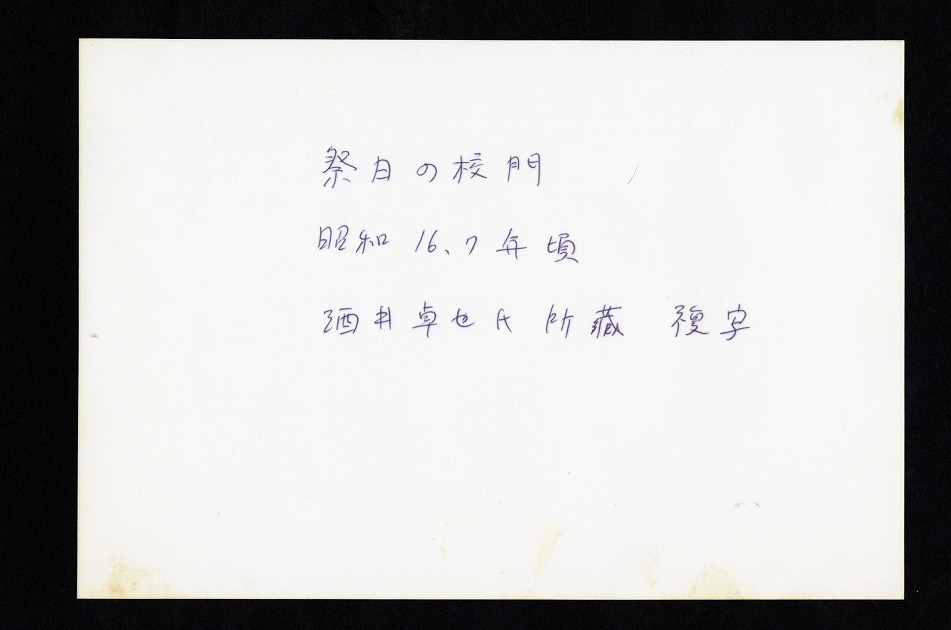 祭日の校門
昭和16、7年頃
酒井卓也氏所蔵 複写